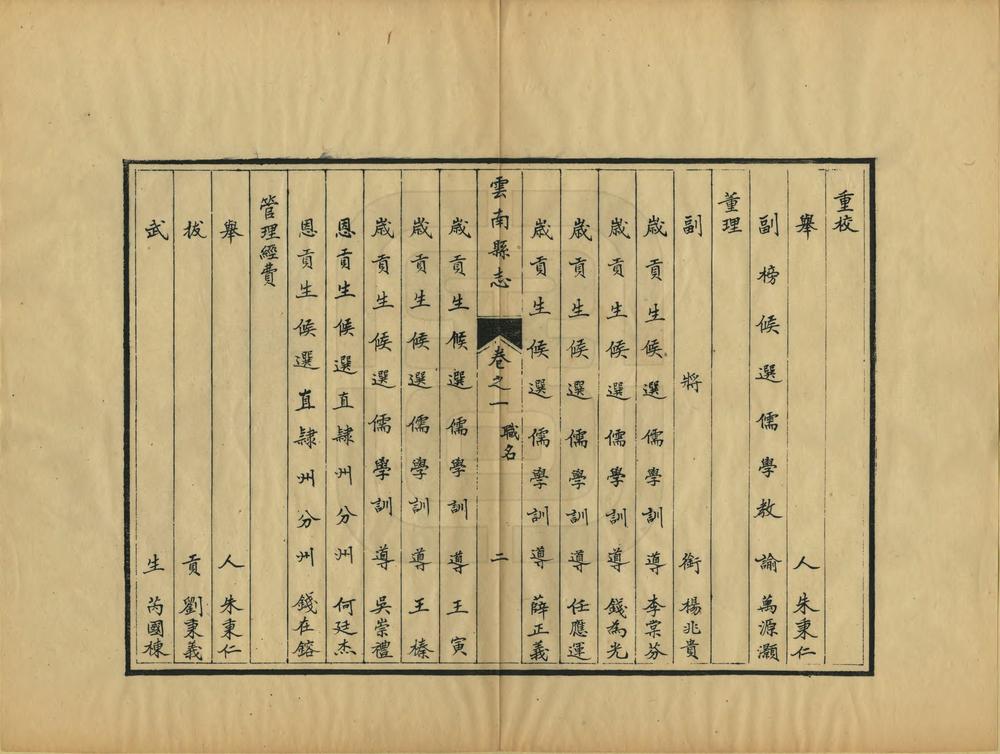 重校
舉人朱秉仁
副榜候選儒學教諭萬源灝
董理
副將銜楊兆貴
歲貢生候選儒學訓導李棠芬
歲貢生候選儒學訓導錢為光
歲貢生候選儒學訓導任應運
歲貢生候選儒學訓導薛正義
雲南縣志
卷之一
職名
二
歲貢生候選儒學訓導王寅
歲貢生候選儒學訓導王榛
歲貢生候選儒學訓導吳崇禮
恩貢生候選直隸州分州何廷杰
恩貢生候選直隸州分州錢在鎔
管理經費
舉人朱秉仁
拔貢劉秉義
武生芮國棟